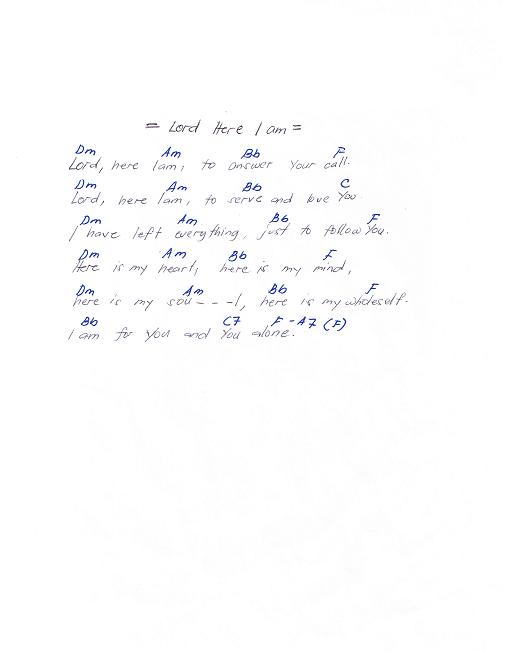 = Lord Here I am =
Dm Am Bb F
Lord, here I am, to answer Your call.
Dm Am Bb C
Lord, here I am, to serve and love You
Dm Am Bb F
I have left everything, just to follow You.
Dm Am Bb F
Here is my heart, here is my mind,
Dm Am Bb F
here is my sou---l, here is my wholeself.
Bb C7 F-A7 (F)
I am for You and You alone.